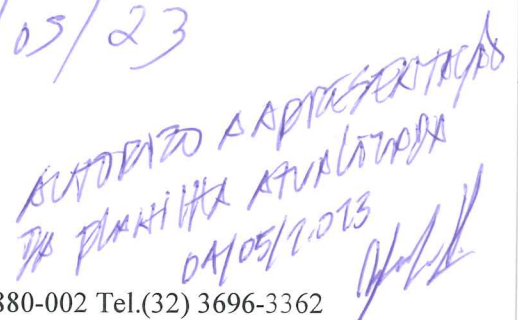 05/23
AUTORIZO A APRESENTAÇÃO
DA PLANILHA ATUALIZADA
04/05/2.023
880-002 Tel.(32) 3696-3362